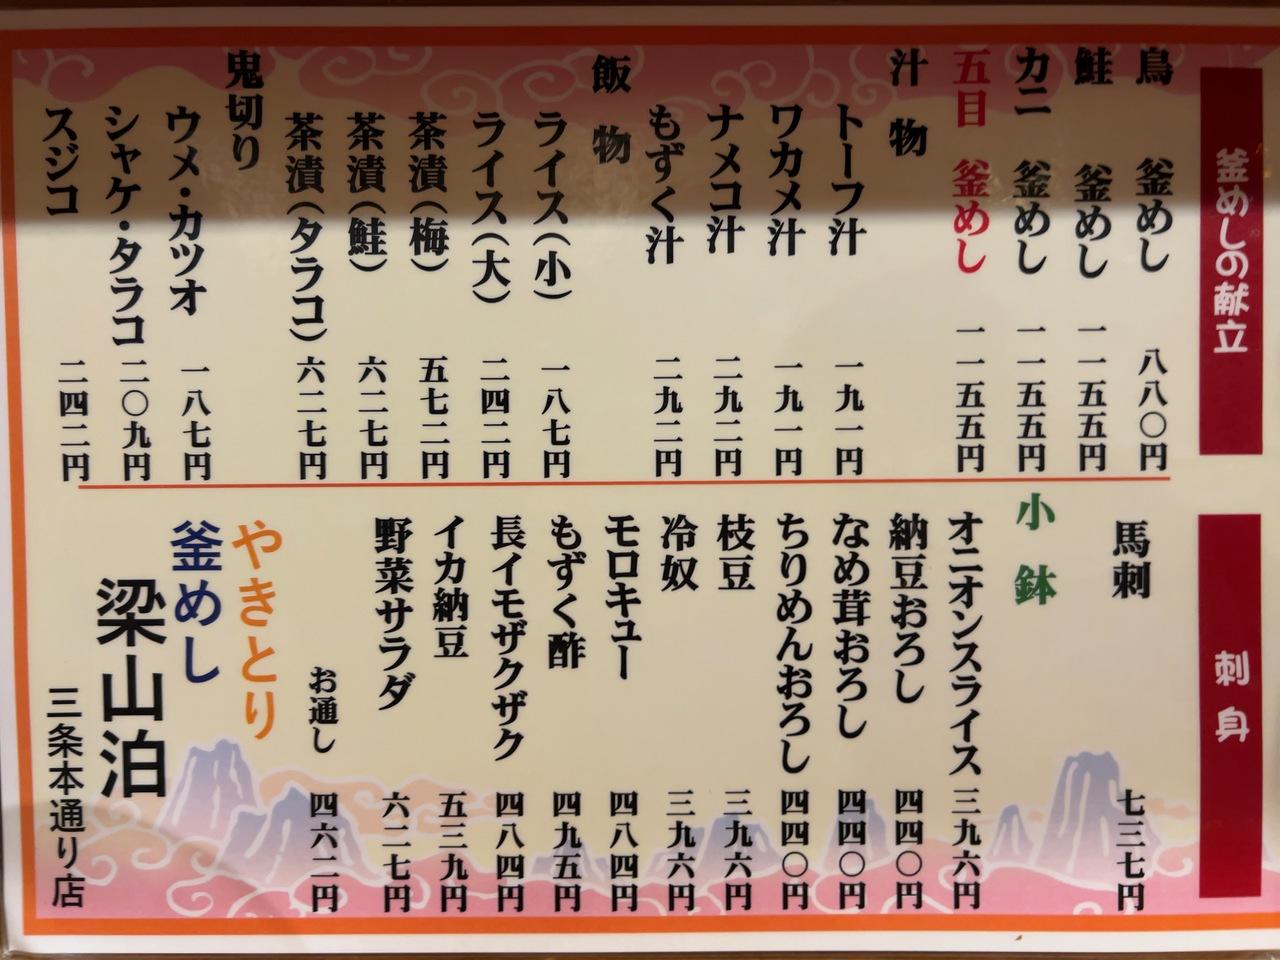 釜めしの献立
鳥 釜めし 八八〇円
鮭 釜めし 一一五五円
カニ 釜めし 一一五五円
五目 釜めし 一一五五円
汁物
トーフ汁 一九一円
ワカメ汁 一九一円
ナメコ汁 二九二円
もずく汁 二九二円
飯物
ライス(小) 一八七円
ライス(大) 二四二円
茶漬(梅) 五七二円
茶漬(鮭) 六二七円
茶漬(タラコ) 六二七円
鬼切り
ウメ・カツオ 一八七円
シャケ・タラコ 二〇九円
スジコ 二四二円
刺身
馬刺 七三七円
小鉢
オニオンスライス 三九六円
納豆おろし 四四〇円
なめ茸おろし 四四〇円
ちりめんおろし 四四〇円
枝豆 三九六円
冷奴 三九六円
モロキュー 四八四円
もずく酢 四九五円
長イモザクザク 四八四円
イカ納豆 五三九円
野菜サラダ 六二七円
お通し 四六二円
やきとり
釜めし
梁山泊
三条本通り店